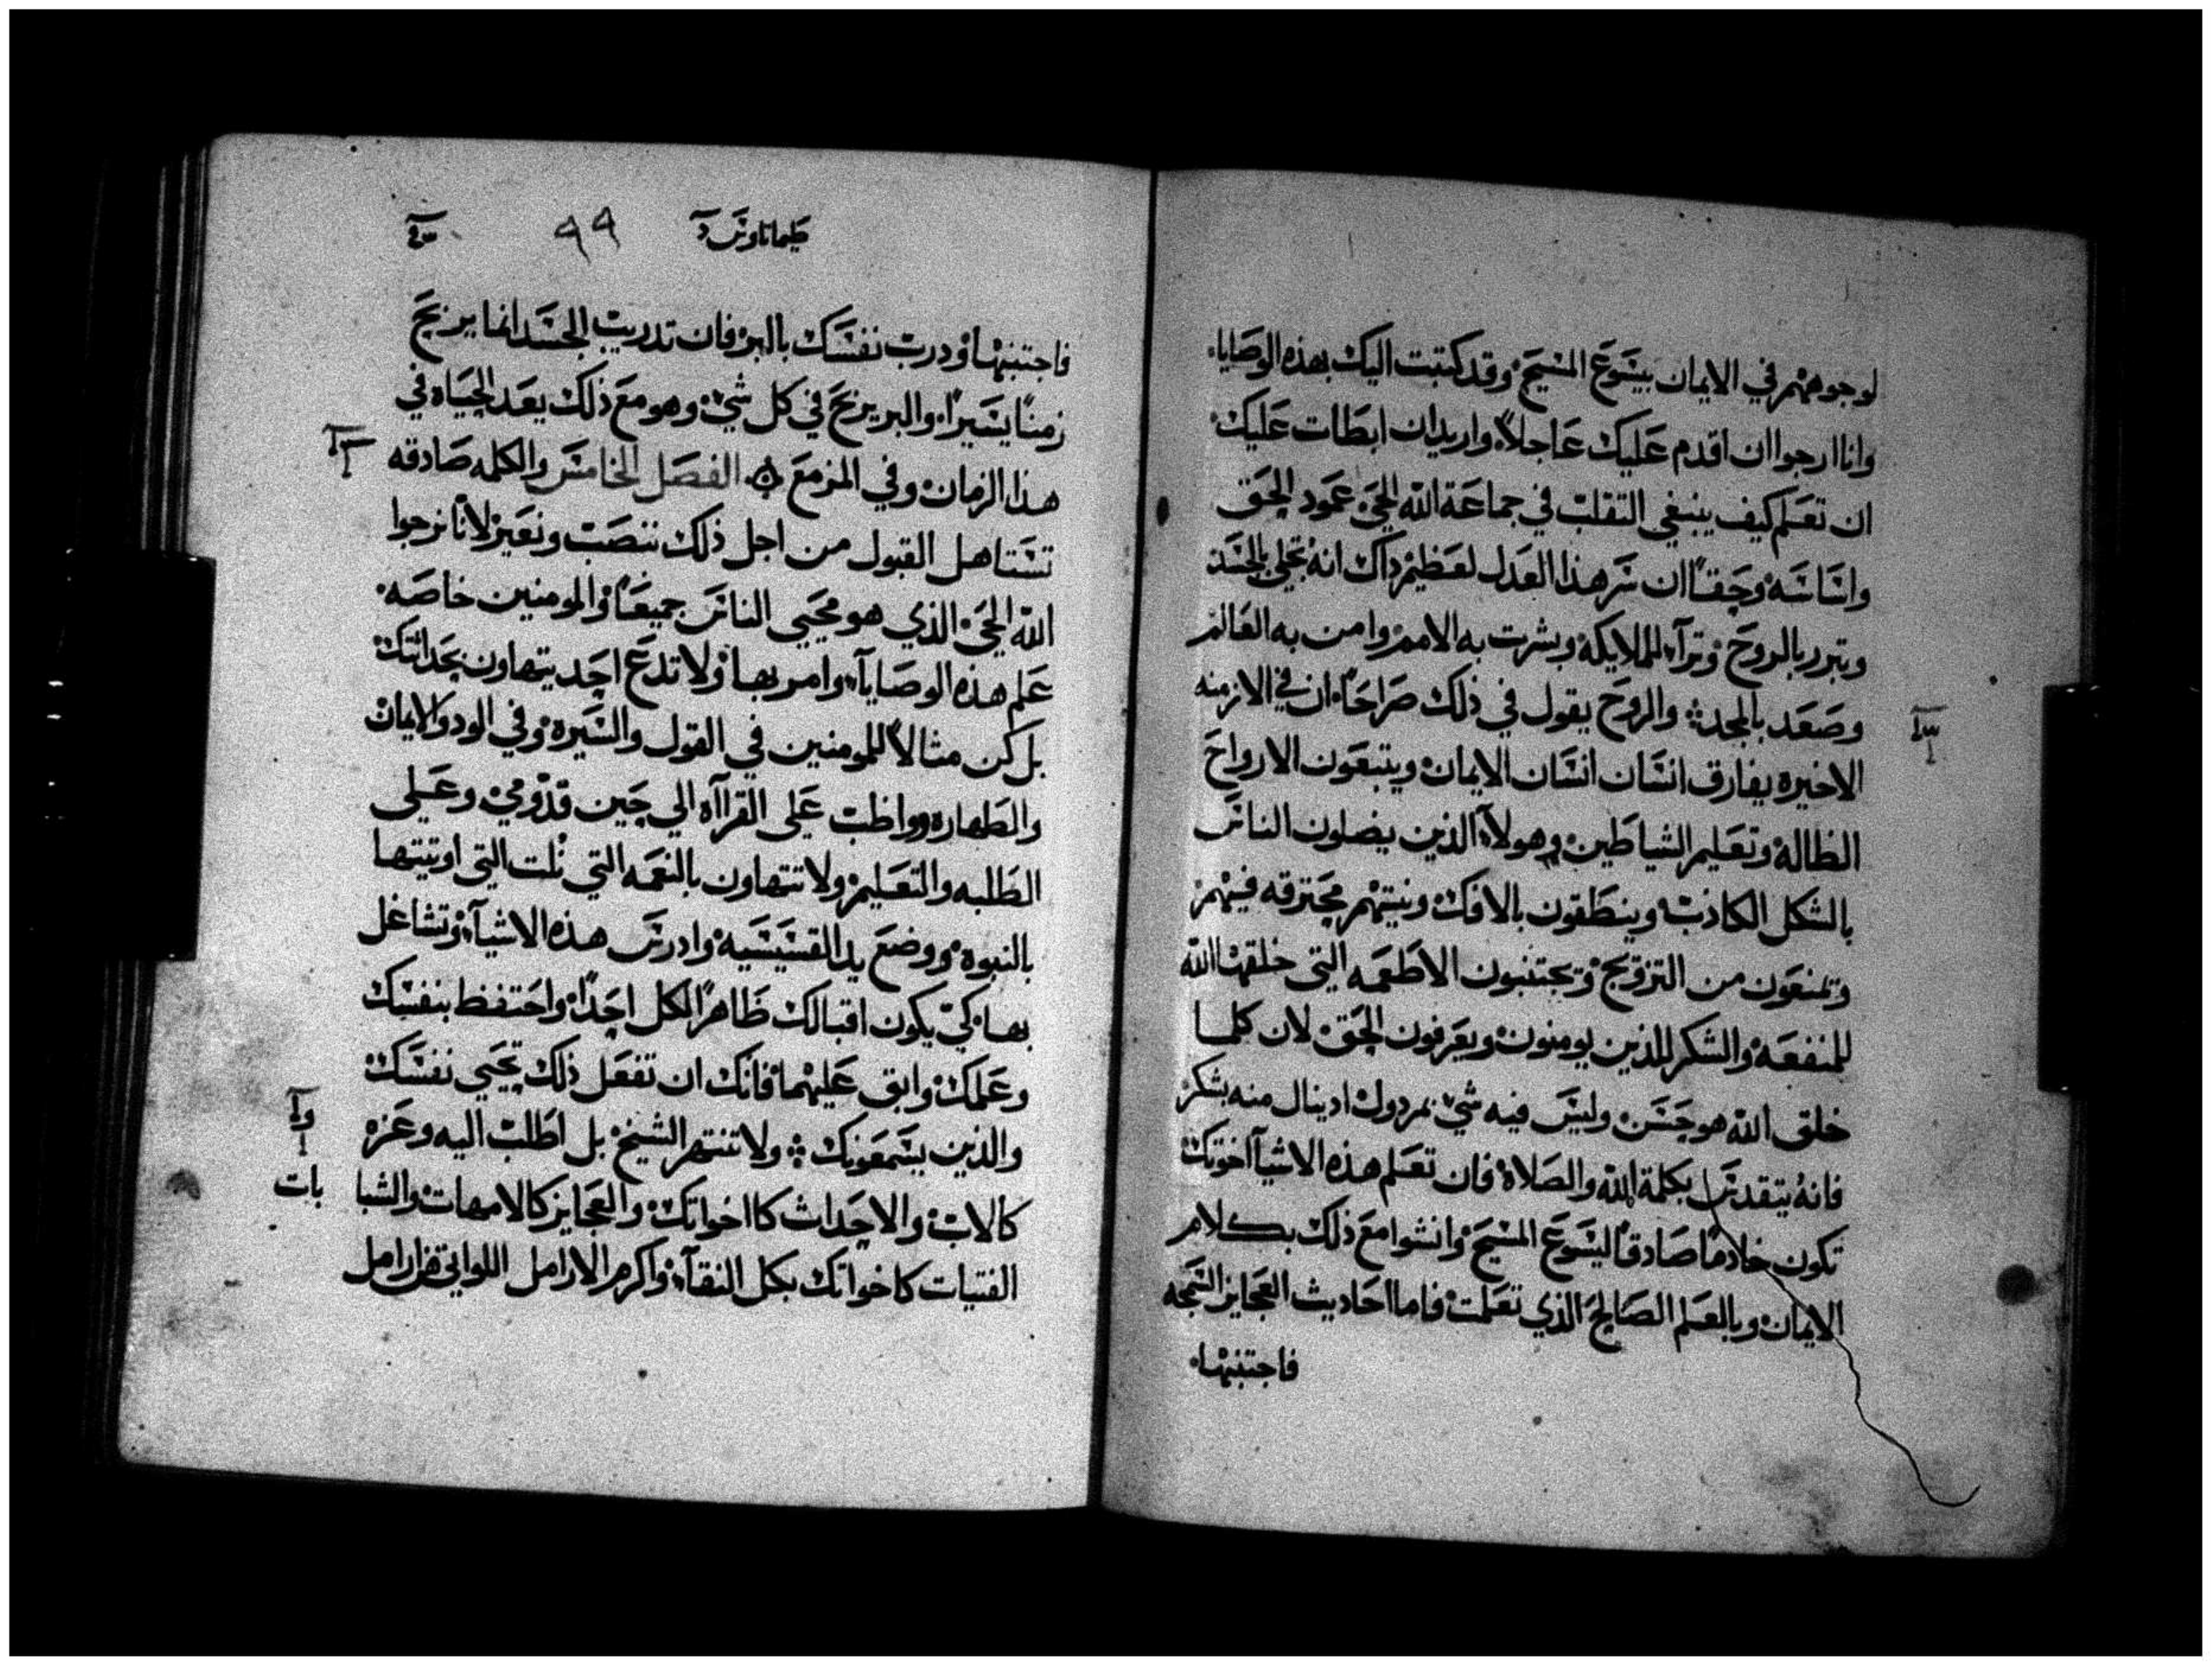 لوجوههم في الايمان بيسوع المسيح وقد كتبت اليك بهذه الوصايا
وانا ارجوا ان اقدم عليك عاجلاً واريد ان ابطات عليك
ان تعلم كيف ينبغي التقلب في جماعة الله الحي عمود الحق
واساسه وحقاً ان سر هذا العدل لعظيم ذاك انه تجلي بالجسد
وتبرر بالروح وترآء للملايكه وبشرت به الامم وامن به العالم
وصعد بالمجد والروح يقول في ذلك صراحاً ان في الازمنه
الاخيره يفارق انسان انسان الايمان ويتبعون الارواح
الظاله وتعليم الشياطين وهولآء الذين يضلون الناس
بالشكل الكاذب وينطقون بالافك ونيتهم محترقه فيهم
ويمنعون من التزويج ويجتنبون الاطعمه التي خلقها الله
للمنفعه والشكر للذين يومنون ويعرفون الحق لان كلما
خلق الله هو حسن وليس فيه شي بمردول اذ ينال منه بشكر
فانه يتقدس بكلمة الله والصلاة فان تعلم هذه الاشيآ اخوتك
تكون خادماً صادقاً ليسوع المسيح وانشوا مع ذلك بكلام
الايمان وبالعلم الصالح الذي تعلمت فاما احاديث العجايز السمجه
فاجتنبها
طيماتاوس آ
٩٩
فاجتنبها ودرب نفسك بالبر فان تدريب الجسد انما يربح
زمناً يسيراً والبر يربح في كل شي وهو مع ذلك يعد الحياه في
هذا الزمان وفي المزمع الفصل الخامس والكلمه صادقه
تستاهل القبول من اجل ذلك ننصب ونعير لانا نرجوا
الله الحي الذي هو محيي الناس جميعاً والمومنين خاصه
علم هذه الوصايآ وامر بها ولا تدع احد يتهاون بحداثتك
بل كن مثالاً للمومنين في القول والسيره وفي الود والايمان
والطهاره وواظب علي القراآه الي حين قدومي وعلي
الطلبه والتعليم ولا تتهاون بالنعمه التي نلت التي اوتيتها
بالنبوه ووضع يد القسيسيه وادرس هذه الاشيآء وتشاغل
بها كي يكون اقبالك ظاهراً لكل احداً واحتفظ بنفسك
وعلمك وابق عليهما فانك ان تفعل ذلك تحيي نفسك
والذين يسمعونك ولا تنتهر الشيخ بل اطلب اليه وعزه
كالاب والاحداث كااخواتك والعجايز كالامهات والشبا
بات
الفتيات كاخواتك بكل النقآء واكرم الارامل اللواتي هن ارامل